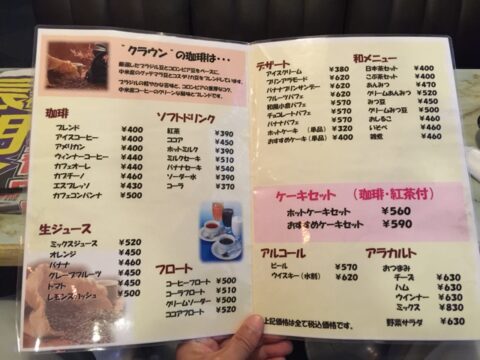 "クラウン"の珈琲は・・・
厳選したブラジル豆とコロンビア豆をベースに、
中米産のグァテマラ豆とコスタリカ豆をブレンドしています。
珈琲
ブレンド ¥400
アイスコーヒー ¥400
アメリカン ¥400
ウィンナーコーヒー ¥440
カフェオーレ ¥440
カプチーノ ¥460
エスプレッソ ¥430
カフェコンパンナ ¥500
ソフトドリンク
紅茶 ¥390
ココア ¥450
ホットミルク ¥390
ミルクセーキ ¥510
バナナセーキ ¥540
ソーダ水 ¥390
コーラ ¥370
生ジュース
ミックスジュース ¥520
オレンジ ¥450
バナナ ¥460
グレープフルーツ ¥450
トマト ¥450
レモンスカッシュ ¥500
フロート
コーヒーフロート ¥500
コーラフロート ¥510
クリームソーダー ¥500
ココアフロート ¥520
デザート
アイスクリーム ¥380
プリンアラモード ¥620
バナナプリンサンデー ¥620
フルーツパフェ ¥620
和風小倉パフェ ¥570
チョコレートパフェ ¥570
バナナパフェ ¥570
ホットケーキ (単品) ¥320
おすすめケーキ (単品) ¥400
和メニュー
日本茶セット ¥400
こぶ茶セット ¥400
あんみつ ¥470
クリームあんみつ ¥520
みつ豆 ¥450
クリームみつ豆 ¥500
おしるこ ¥460
いそべ ¥460
雑煮 ¥460
ケーキセット (珈琲・紅茶付)
ホットケーキセット ¥560
おすすめケーキセット ¥590
アルコール
ビール ¥570
ウイスキー(水割) ¥620
アラカルト
おつまみ
チーズ ¥630
ハム ¥630
ウインナー ¥630
ミックス ¥830
野菜サラダ ¥630
上記価格は全て税込価格です。